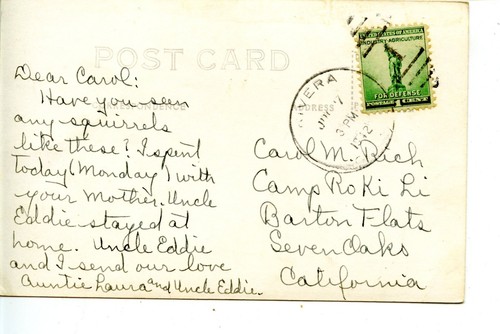 POST CARD
CORRESPONDENCE
ADDRESS
UNITED STATES OF AMERICA
INDUSTRY-AGRICULTURE
FOR DEFENSE
POSTAGE 1 CENT
3 PM
1942
Dear Carol:
Have you seen
any squirrels
like these? I spent
today (Monday) with
your Mother. Uncle
Eddie stayed at
home. Uncle Eddie
and I send our love
Auntie Laura and Uncle Eddie.
Carol M. Rich
Camp Ro Ki Li
Barton Flats
Seven Oaks
California